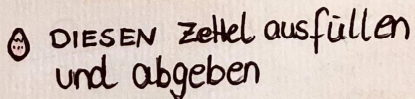 DIESEN Zettel ausfüllen
und abgeben